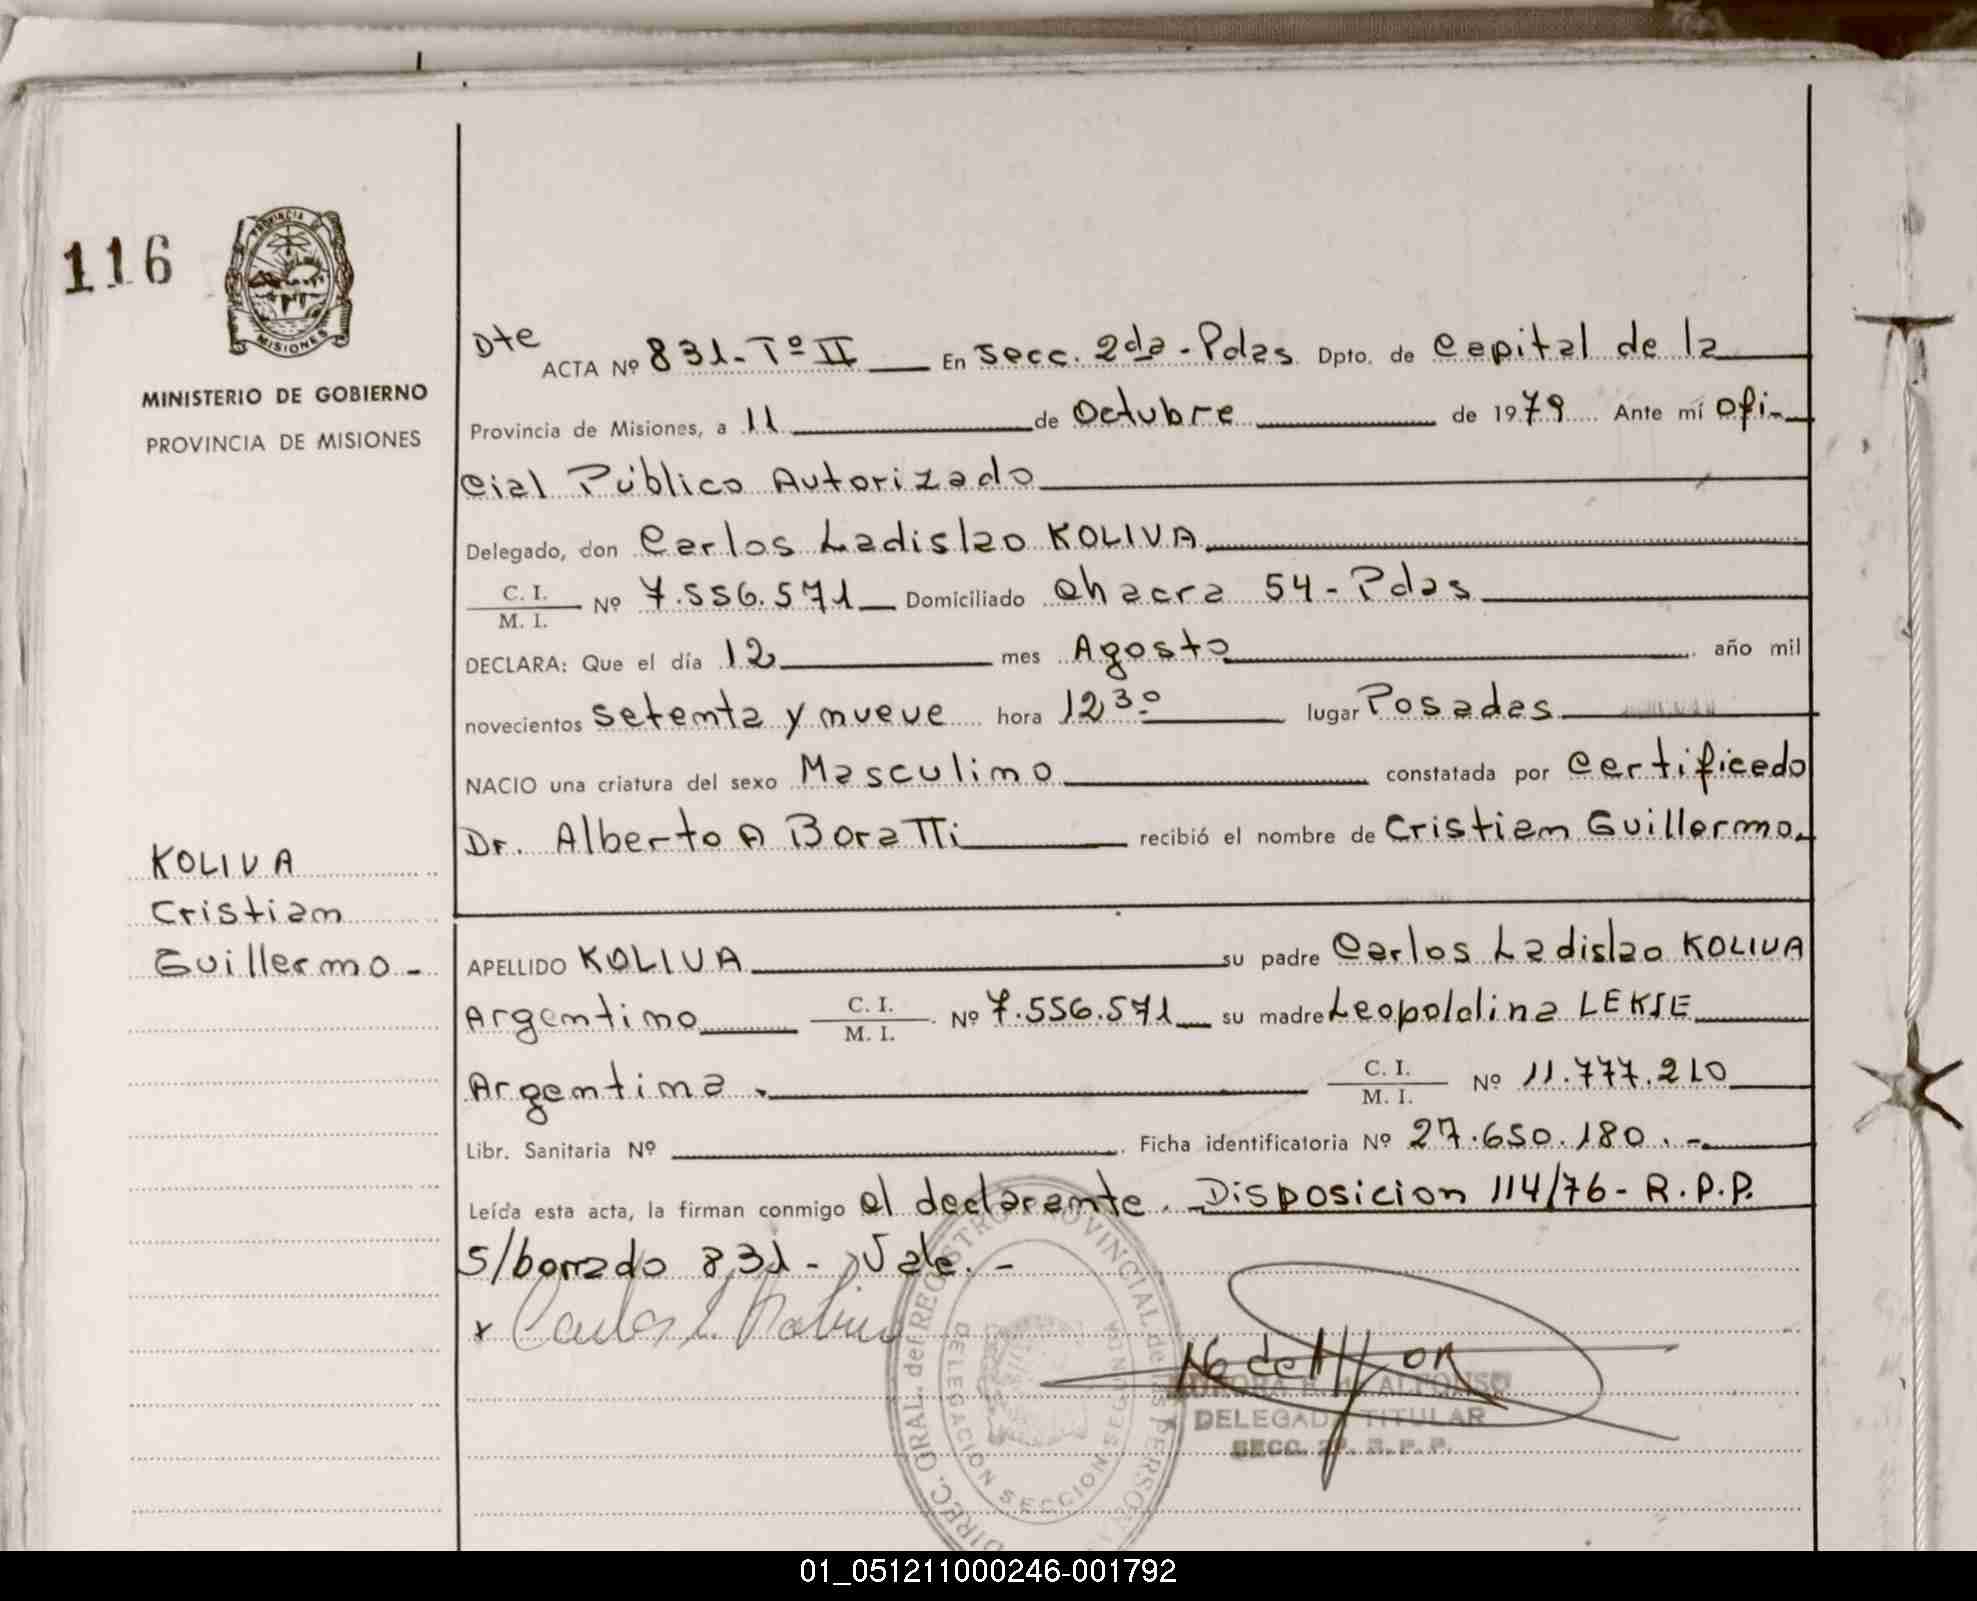 116
PROVINCIA DE
MISIONES
MINISTERIO DE GOBIERNO
PROVINCIA DE MISIONES
Dte ACTA Nº 831-Tº II En Secc. 2da-Pdas. Dpto. de Capital de la
Provincia de Misiones, a 11 de Octubre de 1979 Ante mí Ofi-
cial Público Autorizado
Delegado, don Carlos Ladislao KOLIVA
C. I.
M. I. Nº 7.556.571 Domiciliado Chacra 54-Pdas
DECLARA: Que el día 12 mes Agosto año mil
novecientos setenta y nueve hora 12 30 lugar Posadas
NACIO una criatura del sexo Masculino constatada por Certificado
Dr. Alberto A Boratti recibió el nombre de Cristian Guillermo.
KOLIVA
Cristian
Guillermo-
APELLIDO KOLIVA su padre Carlos Ladislao KOLIVA
Argentino C. I.
M. I. Nº 7.556.571 su madre Leopoldina LEKSE
Argentina. C. I.
M. I. Nº 11.777.210
Libr. Sanitaria Nº Ficha identificatoria Nº 27.650.180.-
Leída esta acta, la firman conmigo el declarante. Disposicion 114/76-R.P.P.
S/borrado 831- Vale.-
x Carlos L. Koliva
DIREC. GRAL. del REGISTRO PROVINCIAL de las PERSO
DELEGACION SECCION SEGUNDA
AURORA H. de ALFONSO
DELEGADA TITULAR
SECC. 2ª. R. P. P.
01_051211000246-001792